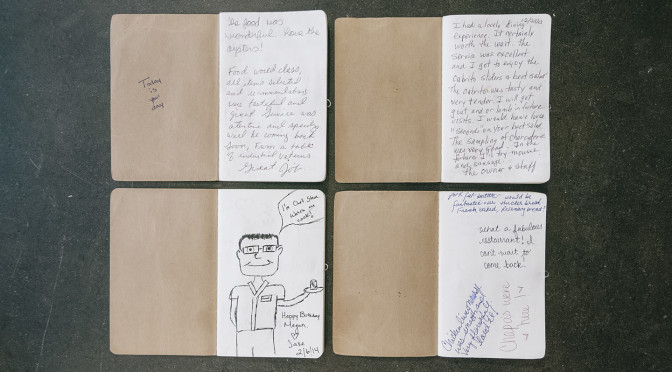 Today
is
your
day
The food was
wonderful have the
oysters!
Food world class,
all items selected
and recommendations
was tasteful and
great Service was
attentive and speedy
will be coming back
Soon, From a table
of industrial Veterans
Great Job
12/20/13
I had a lovely dining
experience. It certainly
worth the wait. the
Service was excellent
and I got to enjoy the
Cabrito sliders & beet salad
The cabrito was tasty and
very tender. I will get
goat and or lamb in future
visits. I would have loved
seconds on your beet salad
The sampling of charcuterie
was very good. In the
future I'll try
and sausage.
the owner & staff
I'm Chef Steve
Watch me
cook!
Happy Birthday
Megan
Jake
2/6/14
pork fat butter would be
fantastic on
Fresh baked, Rosemary bread!
what a fabulous
restaurant! I
can't wait to
come back.
Chicken liver mousse
was
Very
Chapas were
here!